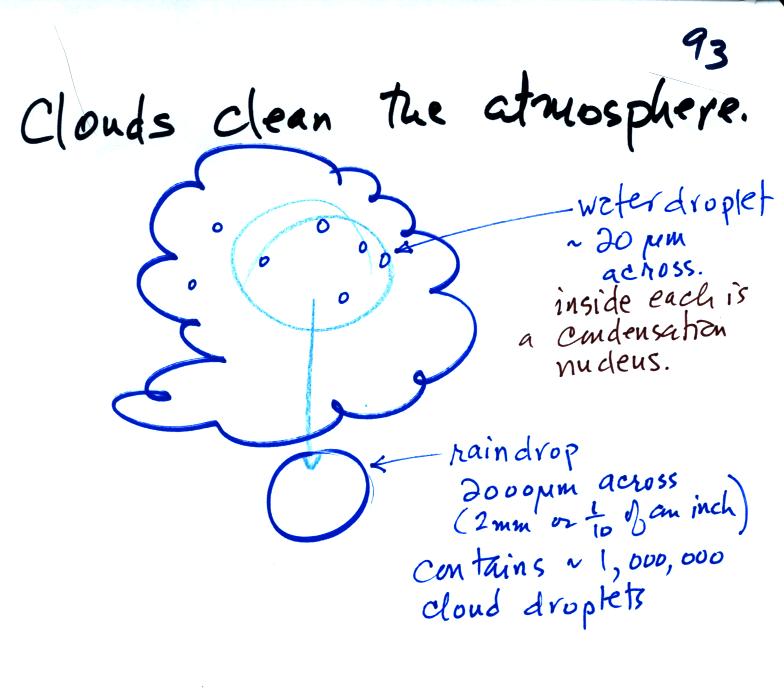 93
Clouds clean the atmosphere.
water droplet
~ 20 μm
across.
inside each is
a condensation
nucleus.
raindrop
2000μm across
(2mm or 1/10 of an inch)
contains ~ 1,000,000
cloud droplets